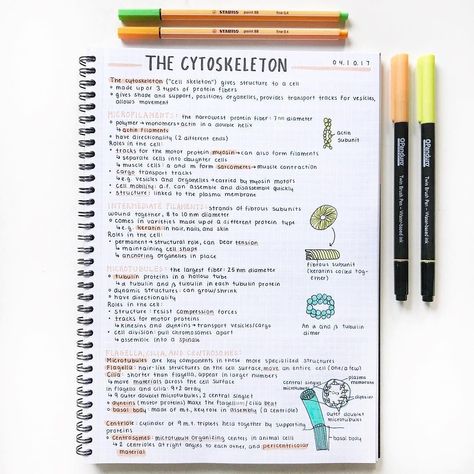 STABILO point 88 fine 0.4
STABILO point 88 fine 0.4
THE CYTOSKELETON
04.10.17
The cytoskeleton ("cell skeleton") gives structure to a cell
• made up of 3 types of protein fibers
• gives shape and support, positions organelles, provides transport tracks for vesicles,
allows movement
MICROFILAMENTS: the narrowest protein fiber: 7nm diameter
• polymer→monomers: actin in a double helix
↳ actin filaments
• have directionality (2 different ends)
Roles in the cell:
• tracks for the motor protein myosin→can also form filaments
↳ separate cells into daughter cells
↳ muscle cells: a and m form sarcomeres→muscle contraction
• cargo transport tracks
↳ e.g. vesicles and organelles→carried by myosin motors
• cell mobility: a.f. can assemble and disassemble quickly
• structure: linked to the plasma membrane
actin
subunit
INTERMEDIATE FILAMENTS: strands of fibrous subunits
wound together, 8 to 10 nm diameter
• comes in varieties made up of a different protein type
↳ e.g. keratin → in hair, nails, and skin
Roles in the cell:
• permanent→structural role, can bear tension
↳ maintaining cell shape
↳ anchoring organelles in place
fibrous subunit
(keratins coiled tog-
ether)
MICROTUBULES: the largest fiber: 25 nm diameter
• tubulin proteins in a hollow tube
↳ α tubulin and β tubulin in each tubulin protein
• dynamic structures: can grow/shrink
• have directionality
Roles in cell:
• structure: resist compression forces
• tracks for motor proteins
↳ kinesins and dyneins→transport vesicles/cargo
• cell division: pull chromosomes apart
↳ assemble into a spindle
An α and β tubulin
dimer
FLAGELLA, CILIA, AND CENTROSOMES
Microtubules are key components in these more specialized structures
Flagella: hair-like structures on the cell surface, move an entire cell (one/few)
Cilia: shorter than flagella, appear in larger numbers
↳ move materials across the cell surface
Flagella and cilia: 9+2 array
↳ 9 outer doublet microtubules, 2 central singlet
↳ dyneins (motor proteins) make the flagellum/cilia beat
• basal body: made of m.t., key role in assembly (a centriole)
Centriole: cylinder of 9 m.t. triplets held together by supporting
proteins
• Centrosomes: microtubule organizing centers in animal cells
↳ 2 centrioles at right angles to each other, and pericentriolar
material
central singlet
microtubules
plasma
membrane
outer doublet
microtubules
basal body
Pendure
Twin Brush Pen - Water-based Ink
Twin Brush Pen - Water-based Ink